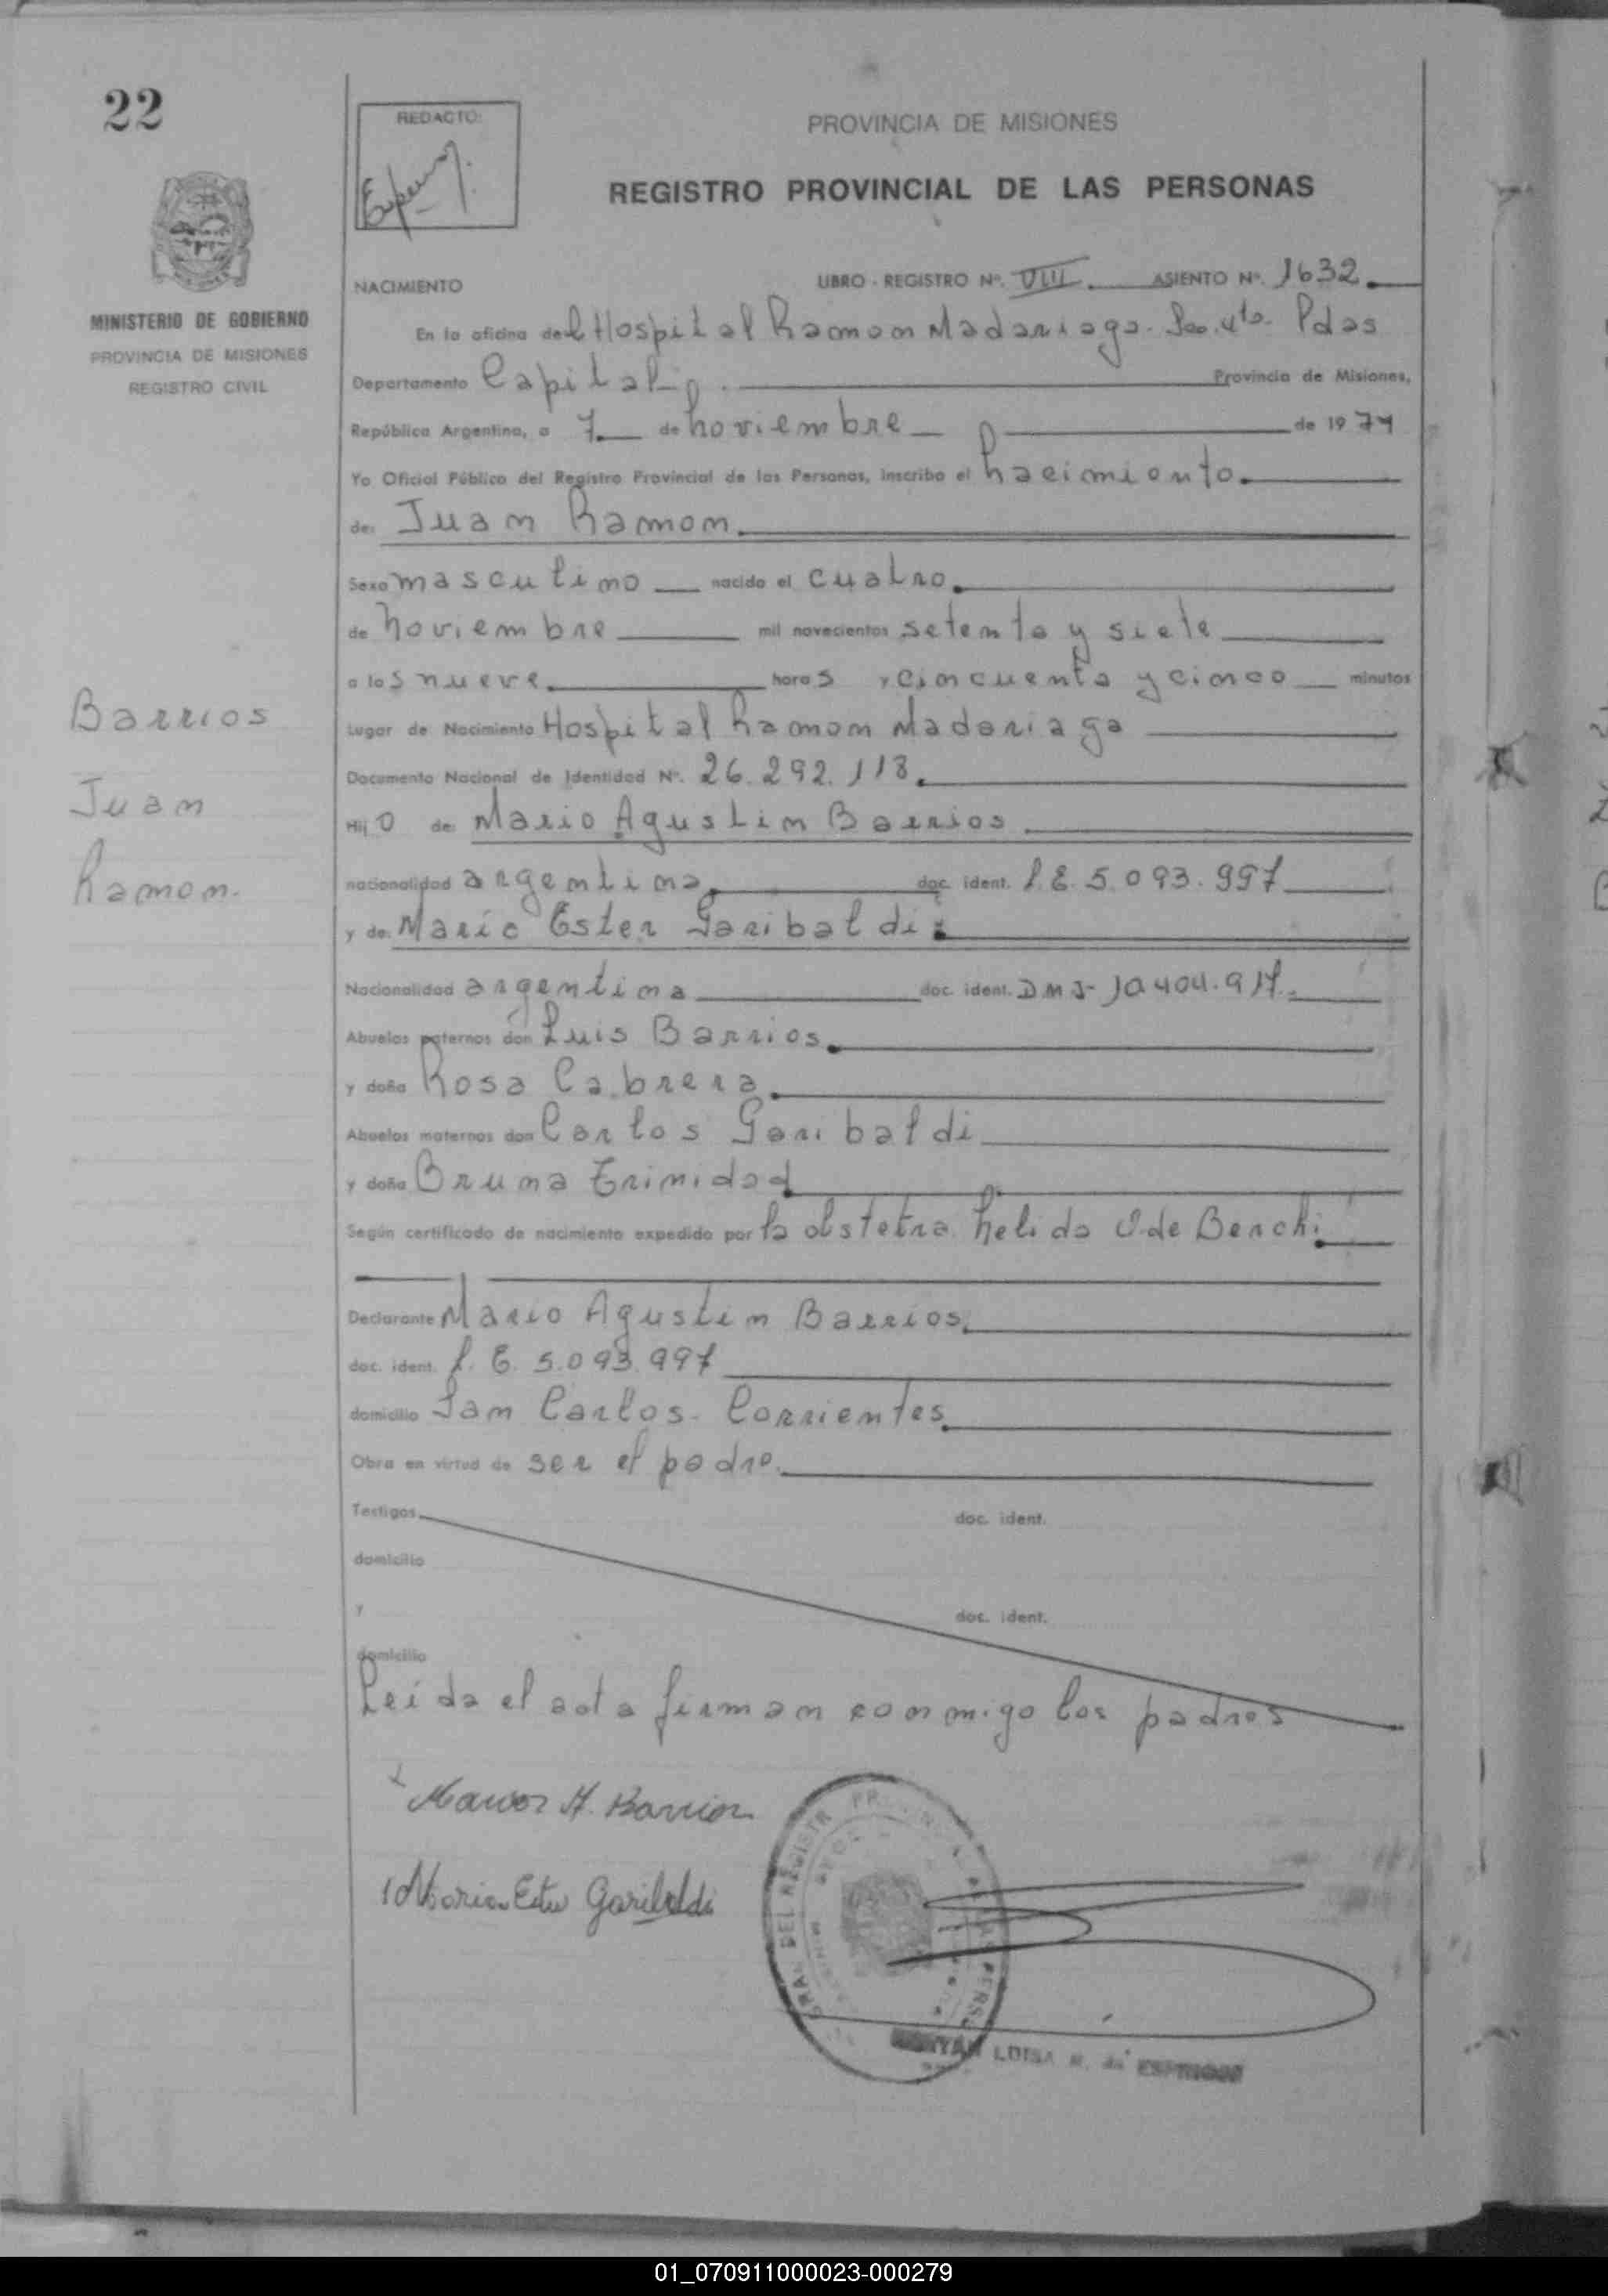 22
REDACTO:
PROVINCIA DE MISIONES
REGISTRO PROVINCIAL DE LAS PERSONAS
MINISTERIO DE GOBIERNO
PROVINCIA DE MISIONES
REGISTRO CIVIL
Barrios
Juan
Ramon.
NACIMIENTO LIBRO - REGISTRO Nº. VIII ASIENTO Nº. 1632
En la oficina del Hospital Ramon Madariaga. Secc. 4ta. Pdas
Departamento Capital Provincia de Misiones,
República Argentina, a 7 de noviembre de 1977
Yo Oficial Público del Registro Provincial de las Personas, inscribo el nacimiento
de: Juan Ramon
Sexo masculino nacido el cuatro
de noviembre mil novecientos setenta y siete
a las nueve horas y cincuenta y cinco minutos
Lugar de Nacimiento Hospital Ramon Madariaga
Documento Nacional de Identidad Nº. 26.292.118
Hijo de: Mario Agustin Barrios
nacionalidad argentina doc. ident. L.E. 5.093.997
y de: María Ester Garibaldi
Nacionalidad argentina doc. ident. DNI- 10.404.917
Abuelos paternos don Luis Barrios
y doña Rosa Cabrera
Abuelos maternos don Carlos Garibaldi
y doña Bruna Trinidad
Según certificado de nacimiento expedido por la obstetra Nelida O. de Benchi
Declarante Mario Agustin Barrios
doc. ident. L.E. 5.093.997
domicilio San Carlos - Corrientes
Obra en virtud de ser el padre
Testigos doc. ident.
domicilio
y doc. ident.
domicilio
Leida el acta firman conmigo los padres
A. Barrios
Maria Ester Garibaldi
DEL REGISTR
LUISA
01_070911000023-000279